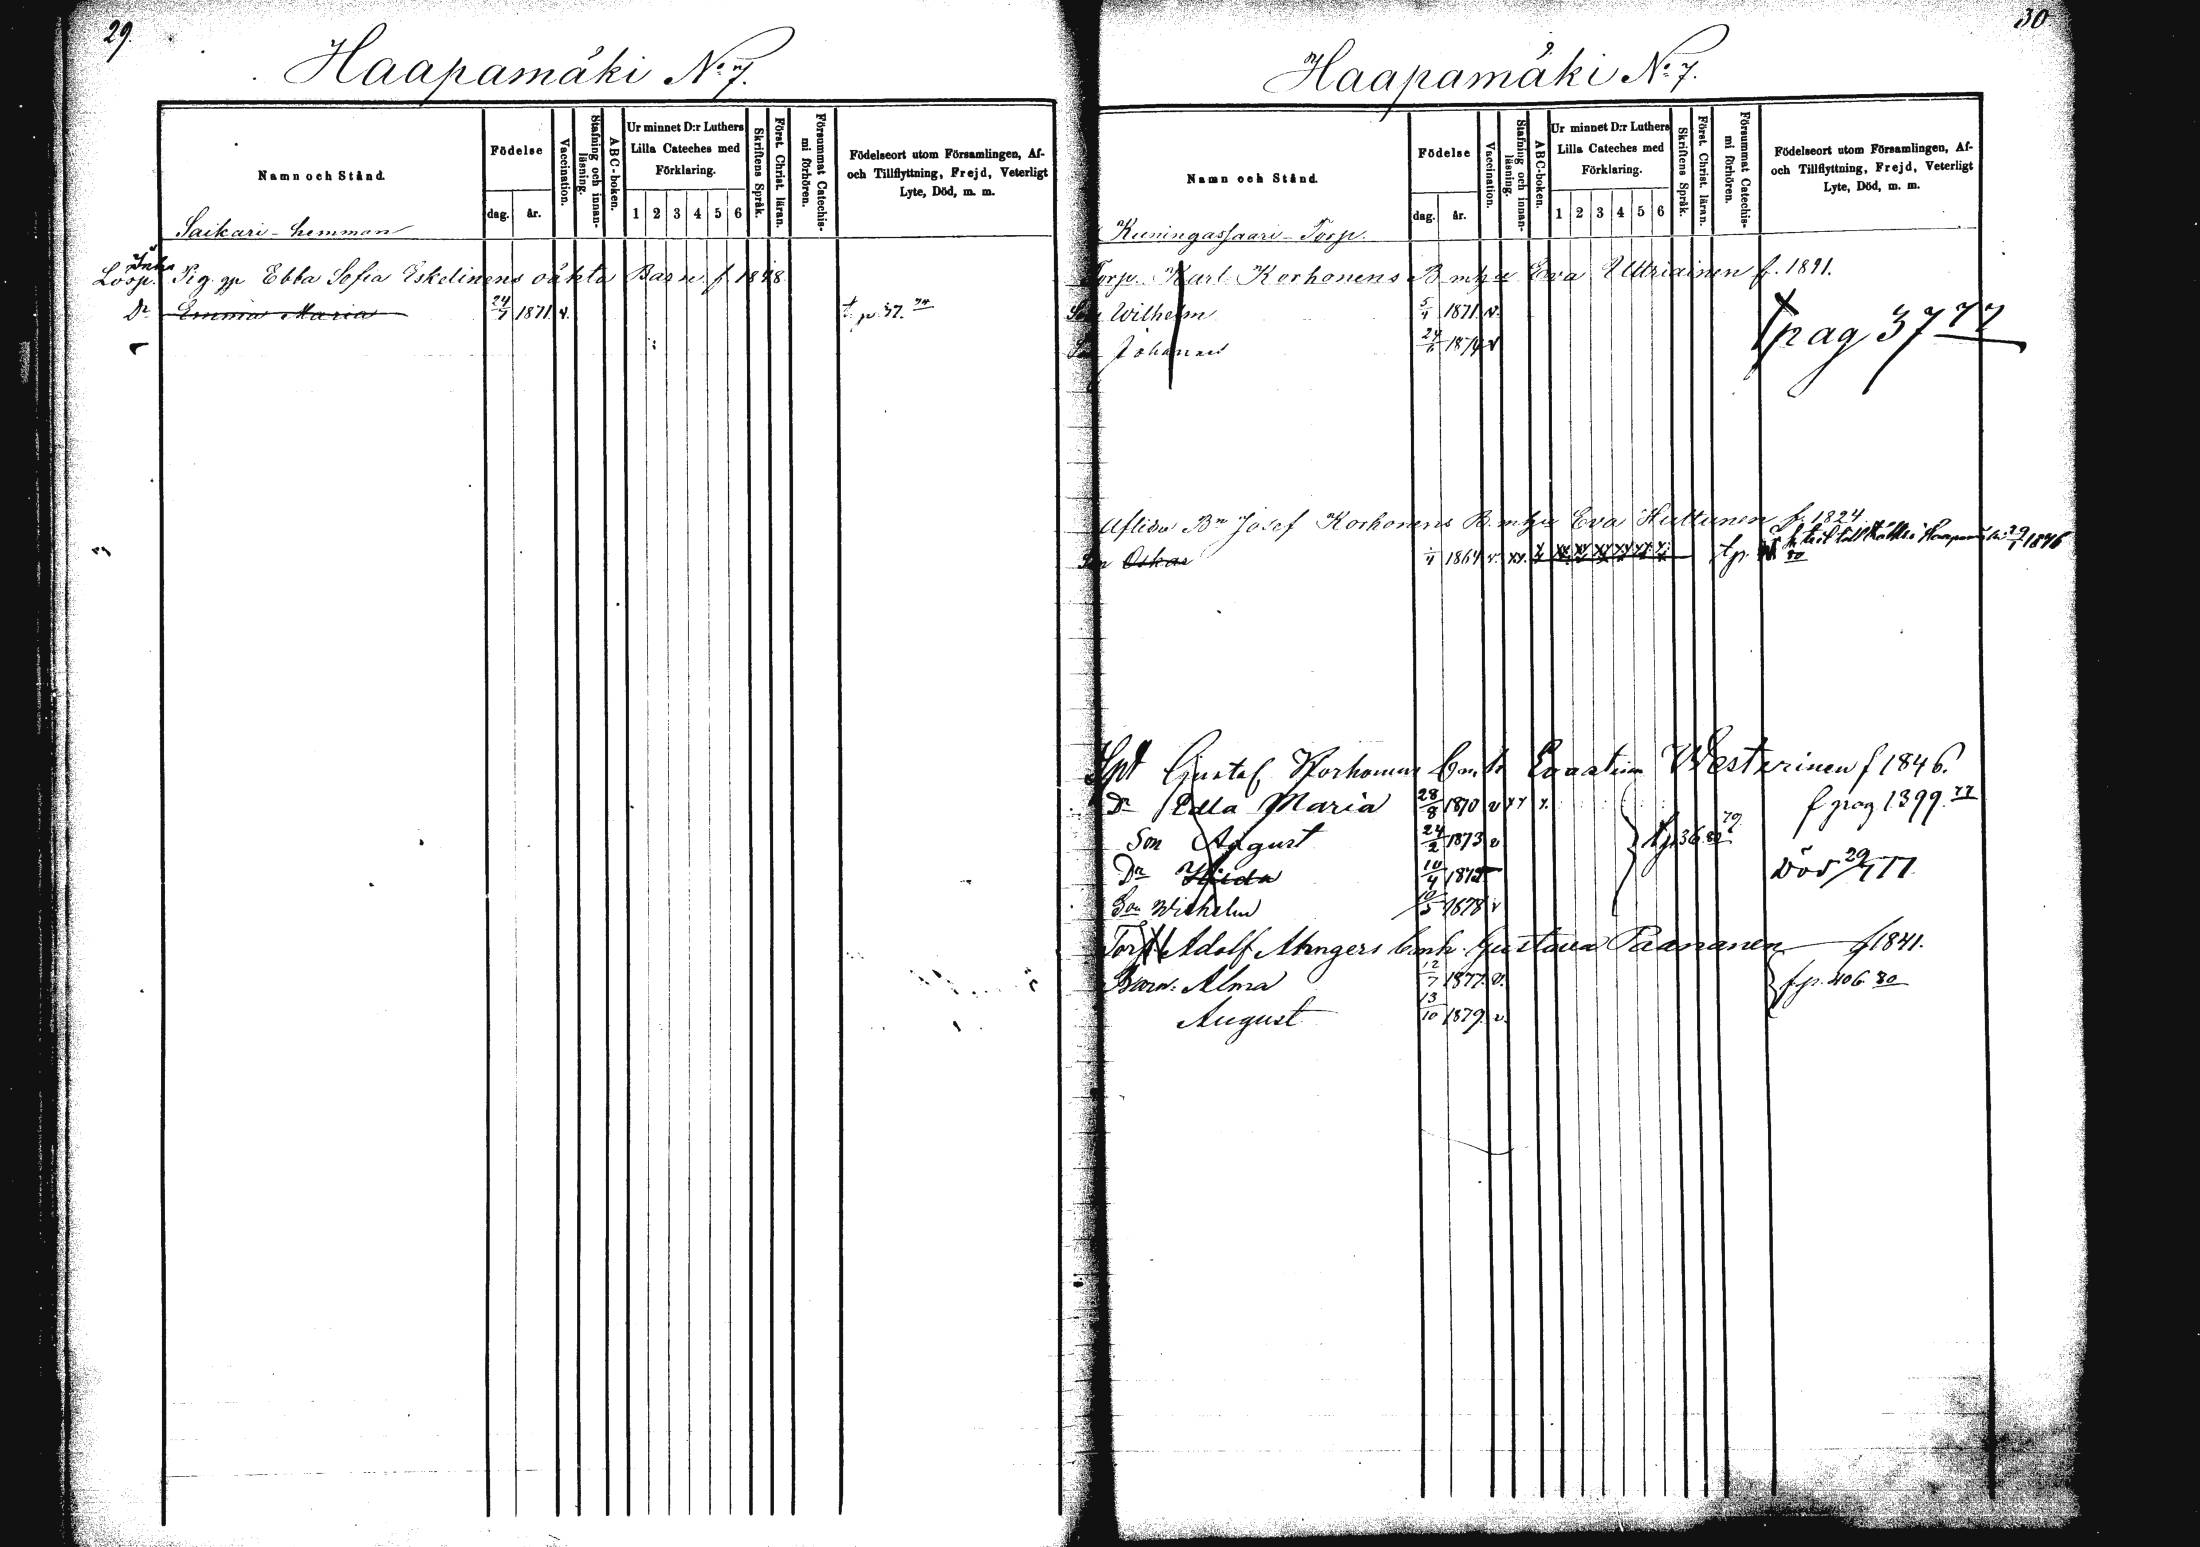 29.
Haapamäki No. 7.
Namn och Stånd.
Födelse
dag. år.
Vaccination.
Stafning och innan-
läsning.
ABC-boken.
Ur minnet D:r Luthers
Lilla Cateches med
Förklaring.
1 2 3 4 5 6
Skriftens Språk.
Först. Christ. läran.
Försummat Catechis-
mi förhören.
Födelseort utom Församlingen, Af-
och Tillflyttning, Frejd, Veterligt
Lyte, Död, m. m.
Saikari-hemman
Inha
Losp. Pig. gp Ebba Sofia Eskelinens oäkta Barn f. 1848
Dr Emma Maria 24/7 1871 v. t. p. 37. 74
30
Haapamäki No. 7.
Namn och Stånd.
Födelse
dag. år.
Vaccination.
Stafning och innan-
läsning.
ABC-boken.
Ur minnet D:r Luthers
Lilla Cateches med
Förklaring.
1 2 3 4 5 6
Skriftens Språk.
Först. Christ. läran.
Försummat Catechis-
mi förhören.
Födelseort utom Församlingen, Af-
och Tillflyttning, Frejd, Veterligt
Lyte, Död, m. m.
Kuningassaari-Torp.
Torp. Karl Korhonens B mhu Eva Uttriainen f. 1891.
Son Wilhelm 5/4 1871 v.
Johannes 24/6 1874 v
t pag 37 77
Aflidn Bn Josef Korhonens B. mhu Eva Huttunen f. 1824
Haapamäki 29/1 1876
Son Oskar 1/4 1864 v. xx. tp. 80
Gustaf Korhonens b m h Eva stina Westerinen f 1846.
Dr Edla Maria 28/8 1870 v x x x. f pag 1399. 77
Son August 24/2 1873 v tp 36 79
Dr Hilda 10/4 1875 Död 29/ 77
Son Wilhelm 10/5 1878 v
Torp Adolf Ahngers bmh. Gustava Paananen f 1841.
Barn: Alma 12/7 1877. v. f p. 406 80
August 13/10 1879. v.